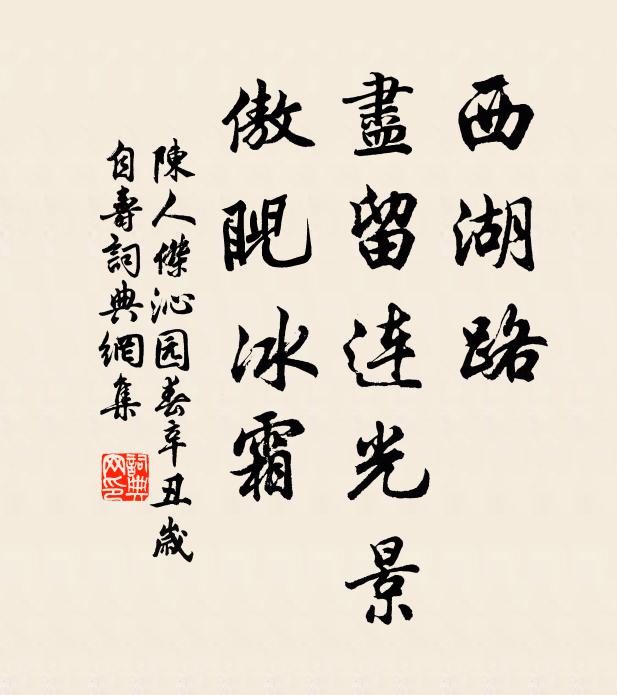 西湖路
盡留连光景
傲睨冰霜
陳人傑沁园春辛丑歲
自壽詞典網集
詞典网印